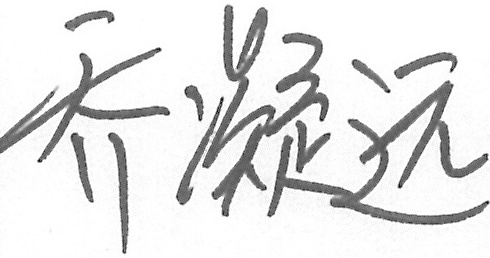 乔凝远